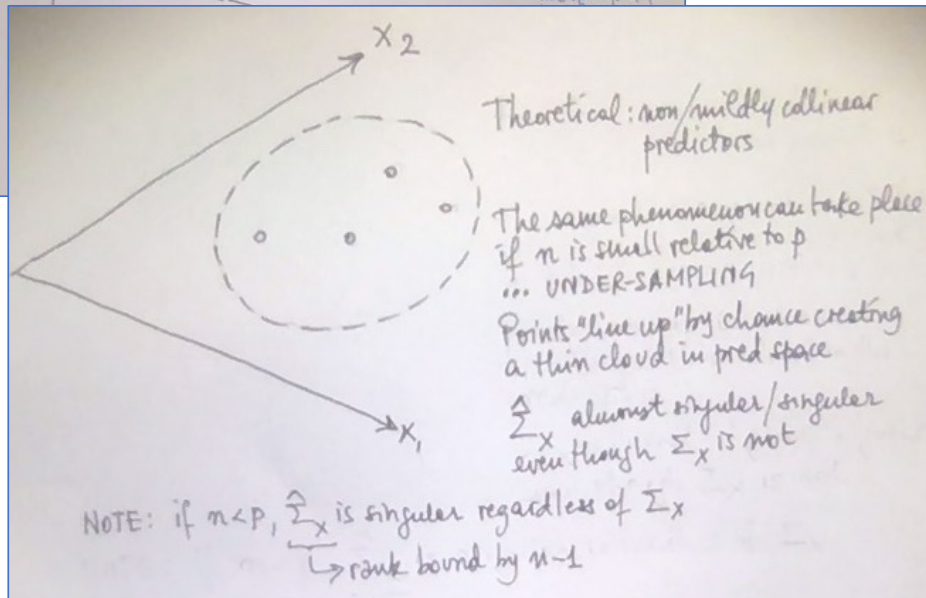 X2
Theoretical: non/mildly collinear
predictors
The same phenomenon can take place
if n is small relative to p
... UNDER-SAMPLING
Points "line up" by chance creating
a thin cloud in pred space
Σ̂x almost singular/singular
even though Σx is not
X1
NOTE: if n<p, Σ̂x is singular regardless of Σx
↳ rank bound by n-1